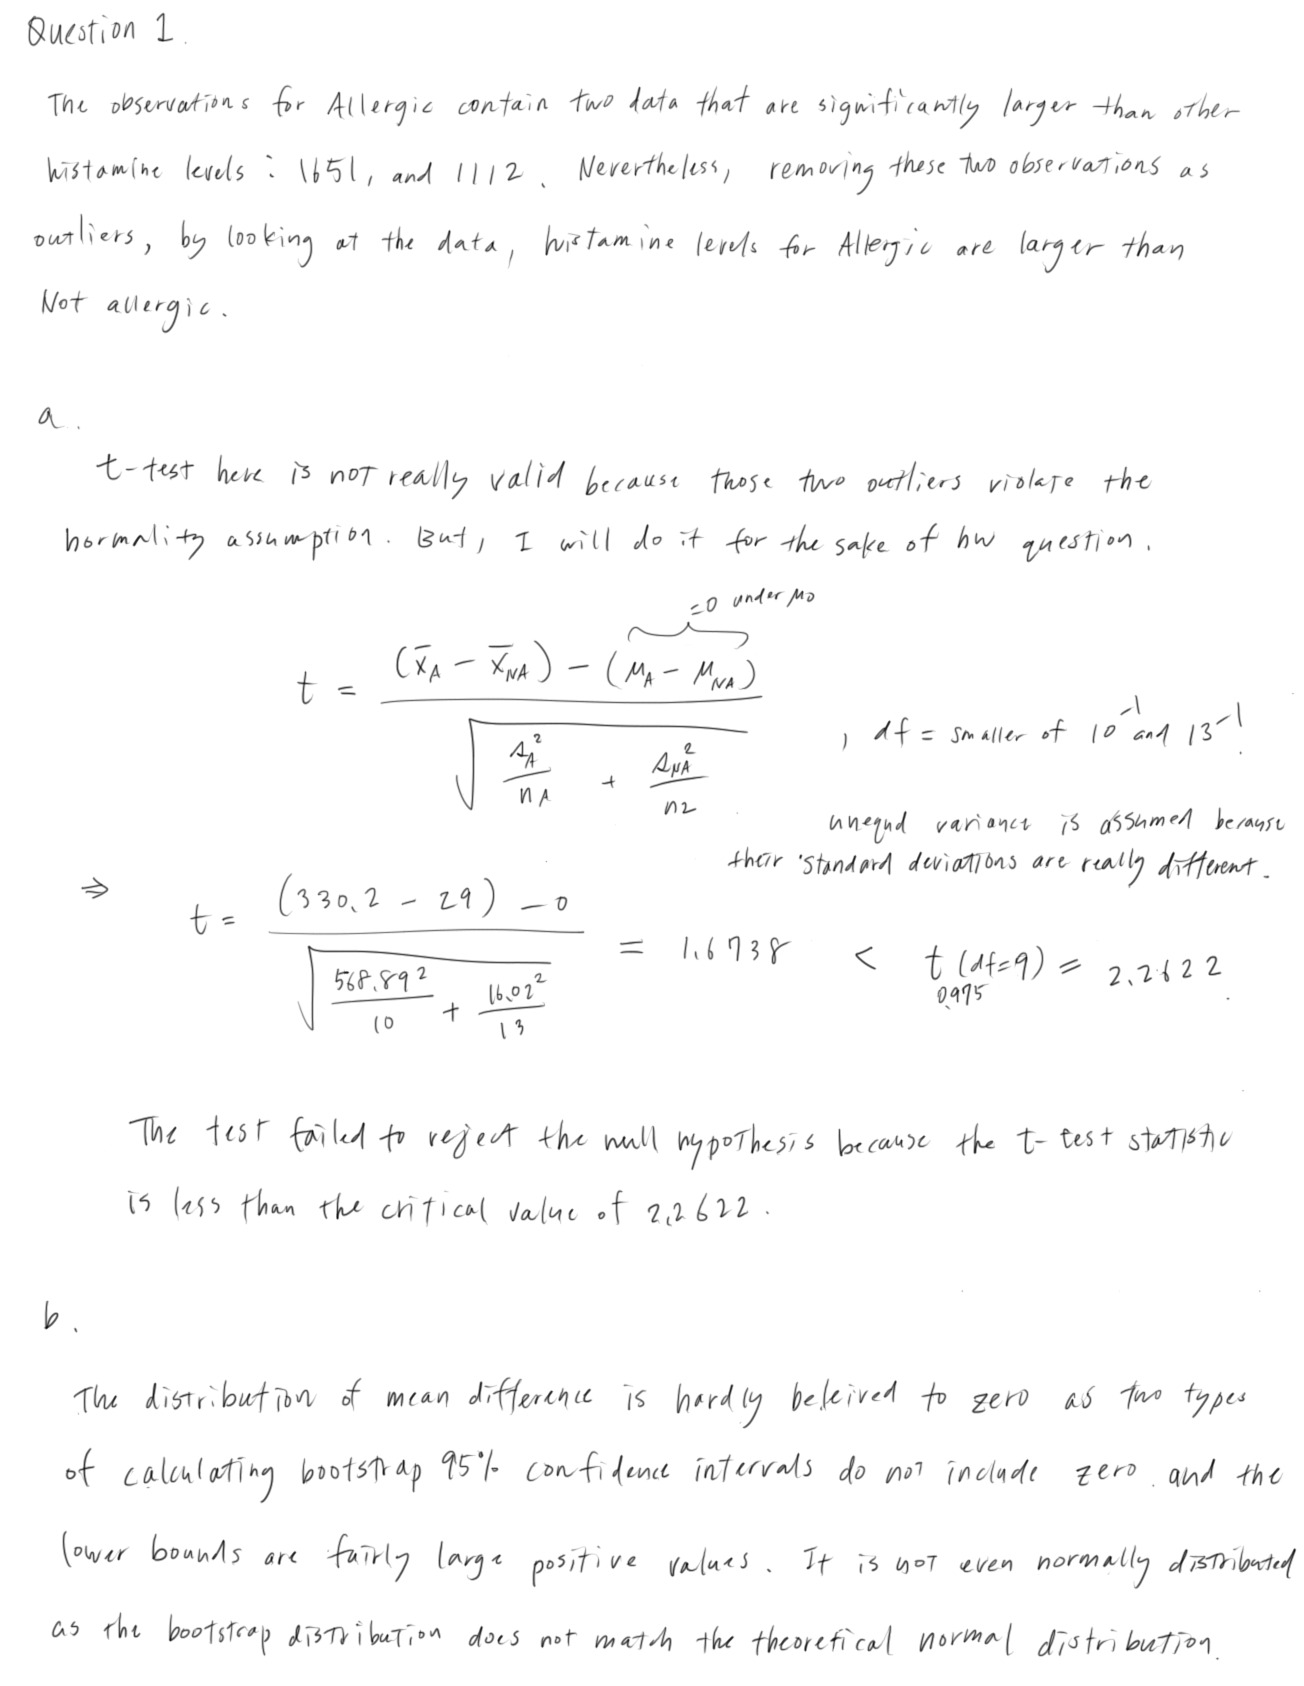 Question 1.
The observations for Allergic contain two data that are significantly larger than other
histamine levels : 1651, and 1112. Nevertheless, removing these two observations as
outliers, by looking at the data, histamine levels for Allergic are larger than
Not allergic.
a.
t-test here is not really valid because those two outliers violate the
normality assumption. But, I will do it for the sake of hw question.
=0 under μ0
t = ((x̄_A − x̄_NA) − (μ_A − μ_NA)) / √(s_A²/n_A + s_NA²/n2) , df = smaller of 10-1 and 13-1.
unequal variance is assumed because
their standard deviations are really different.
⇒ t = ((330.2 − 29) − 0) / √(568.89²/10 + 16.02²/13) = 1.6738 < t_0.975 (df=9) = 2.2622.
The test failed to reject the null hypothesis because the t-test statistic
is less than the critical value of 2.2622.
b.
The distribution of mean difference is hardly beleived to zero as two types
of calculating bootstrap 95% confidence intervals do not include zero. and the
lower bounds are fairly large positive values. It is not even normally distributed
as the bootstrap distribution does not match the theoretical normal distribution.